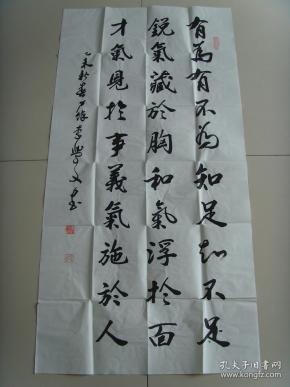 有為有不為知足知不足
銳氣藏於胸和氣浮於面
才氣見於事義氣施於人
乙未秋月
孔夫子旧书网